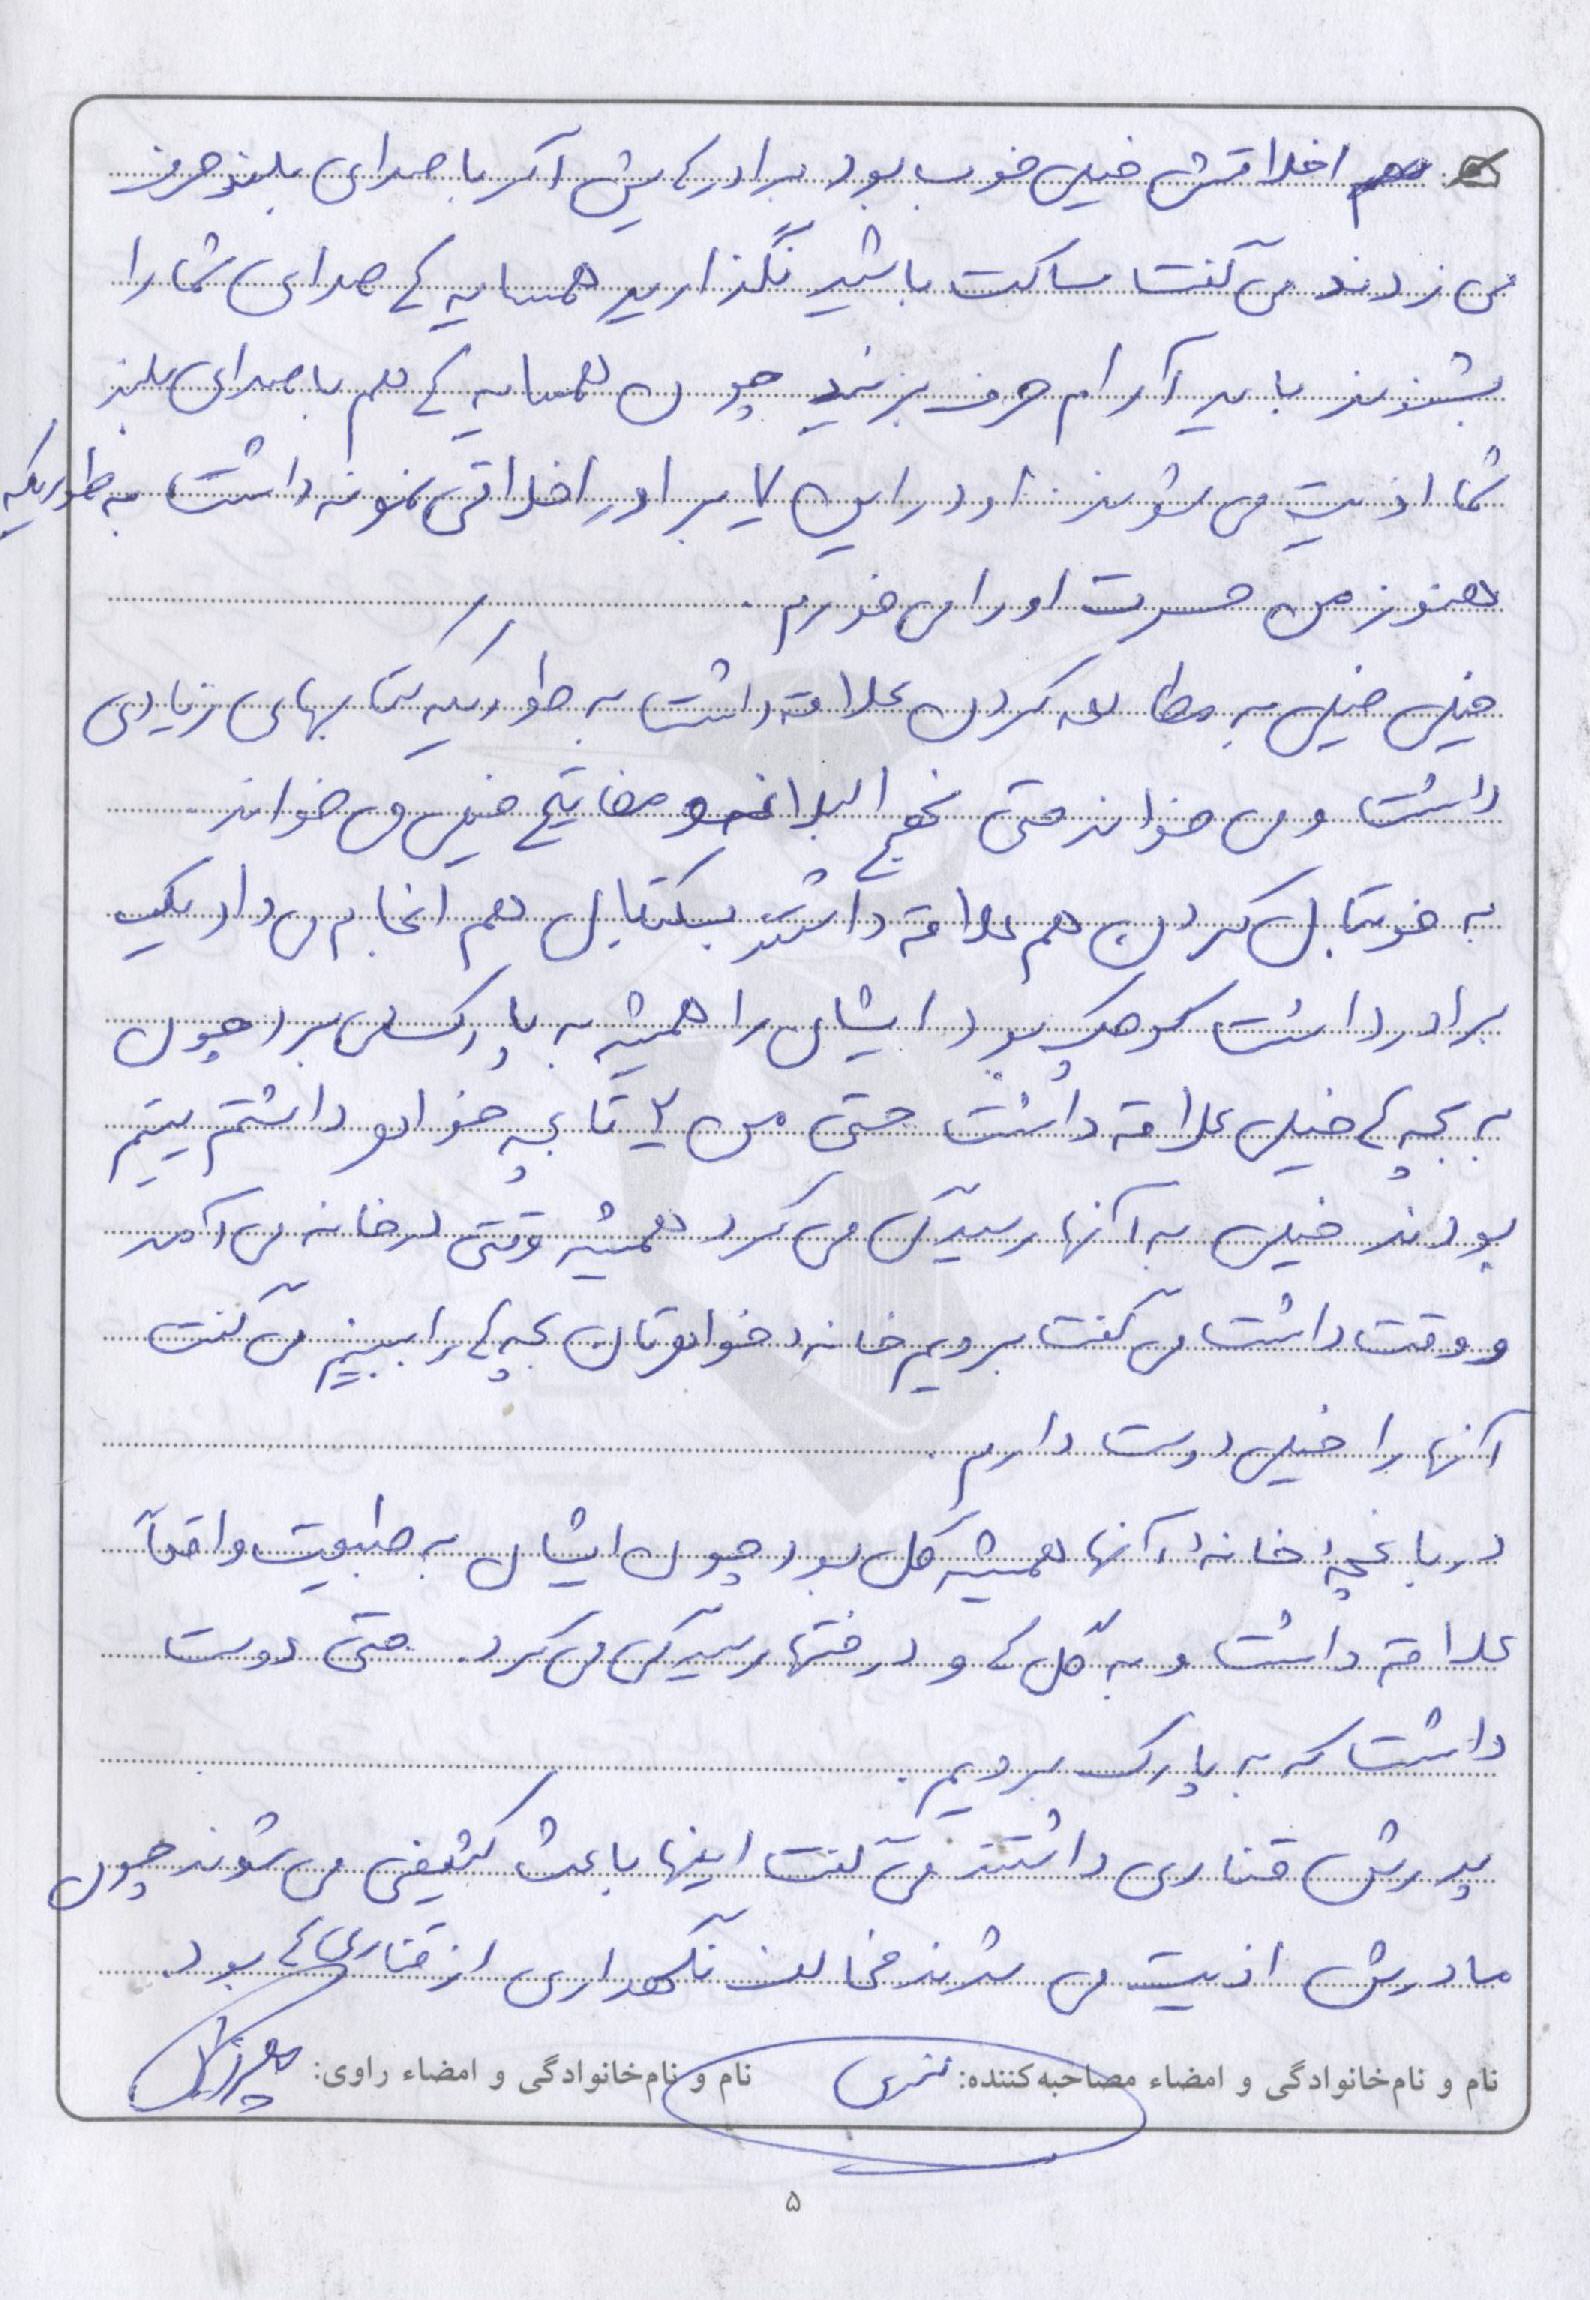 اخلاقش خیلی خوب بود برادرهایش اگر با صدای بلند حرف
می زدند می گفت ساکت باشید نگذارید همسایه ها صدای شما را
بشنوند باید آرام حرف بزنید چون همسایه ها هم با صدای بلند
شما اذیت می شوند او در این ۷ برادر اخلاقی نمونه داشت به طوریکه
هنوز من حسرت او را می خورم.
خیلی خیلی به مطالعه کردن علاقه داشت به طوریکه کتابهای زیادی
داشت و می خواند حتی نهج البلاغه و مفاتیح خیلی می خواند.
به فوتبال کردن هم علاقه داشتند بسکتبال هم انجام می داد یک
برادر داشت کوچک بود ایشان را همیشه به پارک می برد چون
به بچه ها خیلی علاقه داشت حتی من ۲ تا بچه خواهر داشتم یتیم
بودند خیلی به آنها رسیدگی می کرد همیشه وقتی در خانه می آمد
و وقت داشت می گفت برویم خانه خواهرتان بچه ها را ببینیم می گفت
آنها را خیلی دوست دارم.
در باغچهٔ خانهٔ آنها همیشه گل بود چون ایشان به طبیعت واقعاً
علاقه داشت و به گل ها و درختها رسیدگی می کرد. حتی دوست
داشت که به پارک برویم.
پدرش قناری داشتند می گفت اینها باعث کثیفی می شوند چون
مادرش اذیت می شدند مخالف نگهداری از قناری ها بود.
نام و نام‌خانوادگی و امضاء مصاحبه‌کننده: نام و نام‌خانوادگی و امضاء راوی:
۵